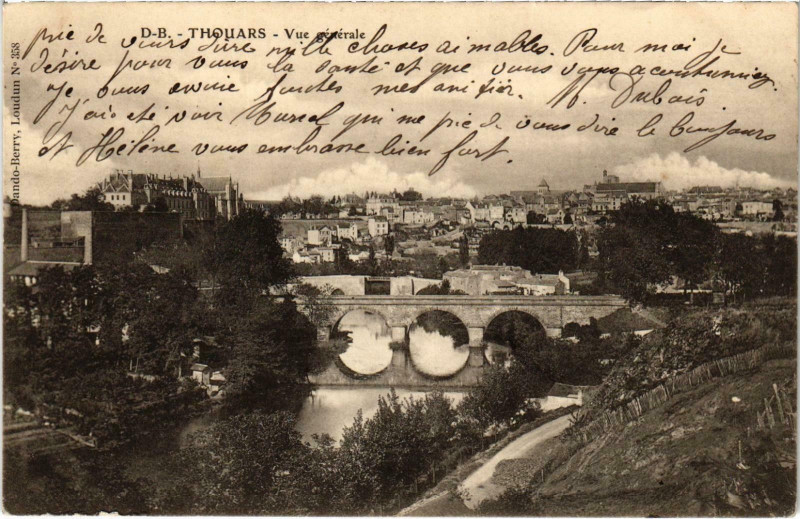 D-B. - THOUARS - Vue générale
prie de vous dire mille choses aimables. Pour moi je
désire pour vous la santé et que vous vous acoutumiez
Je vous envoie toutes mes amitiés. M. Dubois.
J'ai été voir Marcel qui me prie de vous dire le bonjours
et Hélène vous embrasse bien fort.
Dando-Berry, Loudun N° 358